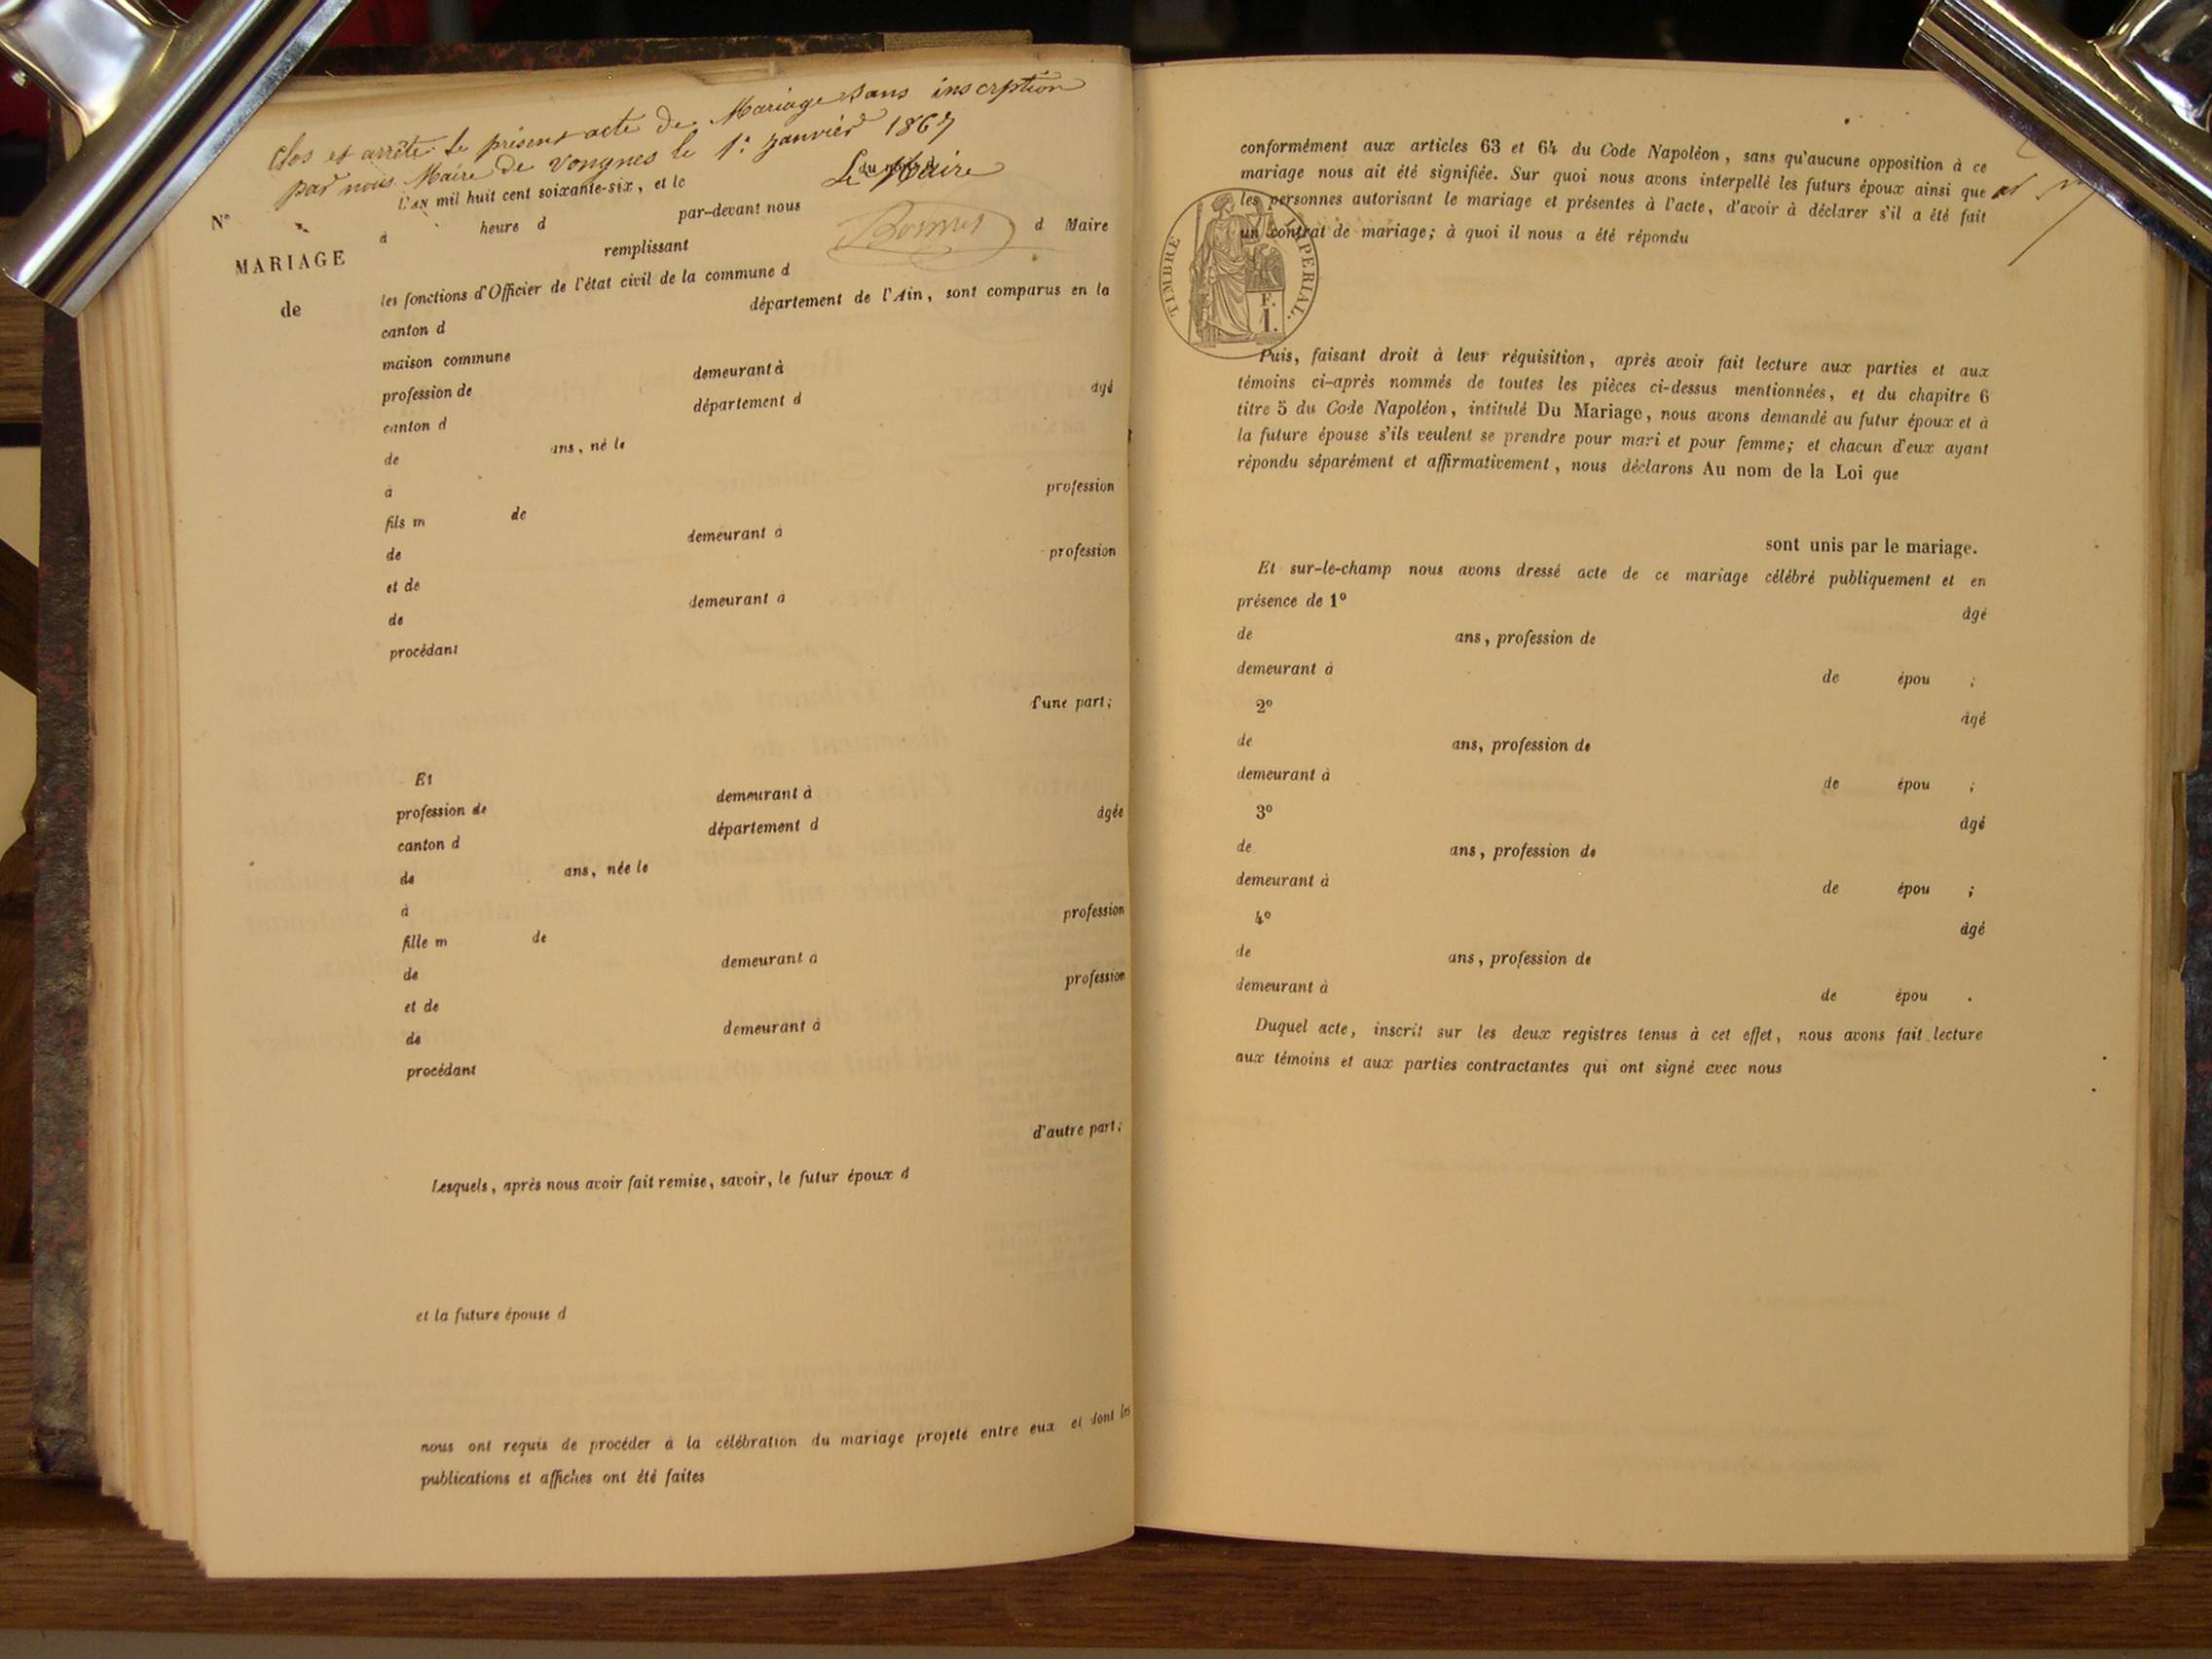 Clos et arrêté le présent acte de Mariage sans inscrption
par nous Maire de Vongnes le 1er janvier 1867
Le Maire
L'AN mil huit cent soixante-six, et le du mois
N° à heure d par-devant nous
remplissant d Maire
MARIAGE
les fonctions d'Officier de l'état civil de la commune d
de
canton d département de l'Ain, sont comparus en la
maison commune
profession de demeurant à
canton d département d âgé
de ans, né le
à
fils m de profession
de demeurant à
et de profession
de demeurant à
procédant
d'une part;
Et
profession de demeurant à
canton d département d âgée
de ans, née le
à
fille m de profession
de demeurant à
et de profession
de demeurant à
procédant
d'autre part;
Lesquels, après nous avoir fait remise, savoir, le futur époux d
et la future épouse d
nous ont requis de procéder à la célébration du mariage projeté entre eux et dont les
publications et affiches ont été faites
conformément aux articles 63 et 64 du Code Napoléon, sans qu'aucune opposition à ce
mariage nous ait été signifiée. Sur quoi nous avons interpellé les futurs époux ainsi que
les personnes autorisant le mariage et présentes à l'acte, d'avoir à déclarer s'il a été fait
un contrat de mariage; à quoi il nous a été répondu
TIMBRE IMPERIAL.
F.
1.
Puis, faisant droit à leur réquisition, après avoir fait lecture aux parties et aux
témoins ci-après nommés de toutes les pièces ci-dessus mentionnées, et du chapitre 6
titre 5 du Code Napoléon, intitulé Du Mariage, nous avons demandé au futur époux et à
la future épouse s'ils veulent se prendre pour mari et pour femme; et chacun d'eux ayant
répondu séparément et affirmativement, nous déclarons Au nom de la Loi que
sont unis par le mariage.
Et sur-le-champ nous avons dressé acte de ce mariage célébré publiquement et en
présence de 1° âgé
de ans, profession de
demeurant à de épou ;
2° âgé
de ans, profession de
demeurant à de épou ;
3° âgé
de ans, profession de
demeurant à de épou ;
4° âgé
de ans, profession de
demeurant à de épou .
Duquel acte, inscrit sur les deux registres tenus à cet effet, nous avons fait lecture
aux témoins et aux parties contractantes qui ont signé avec nous